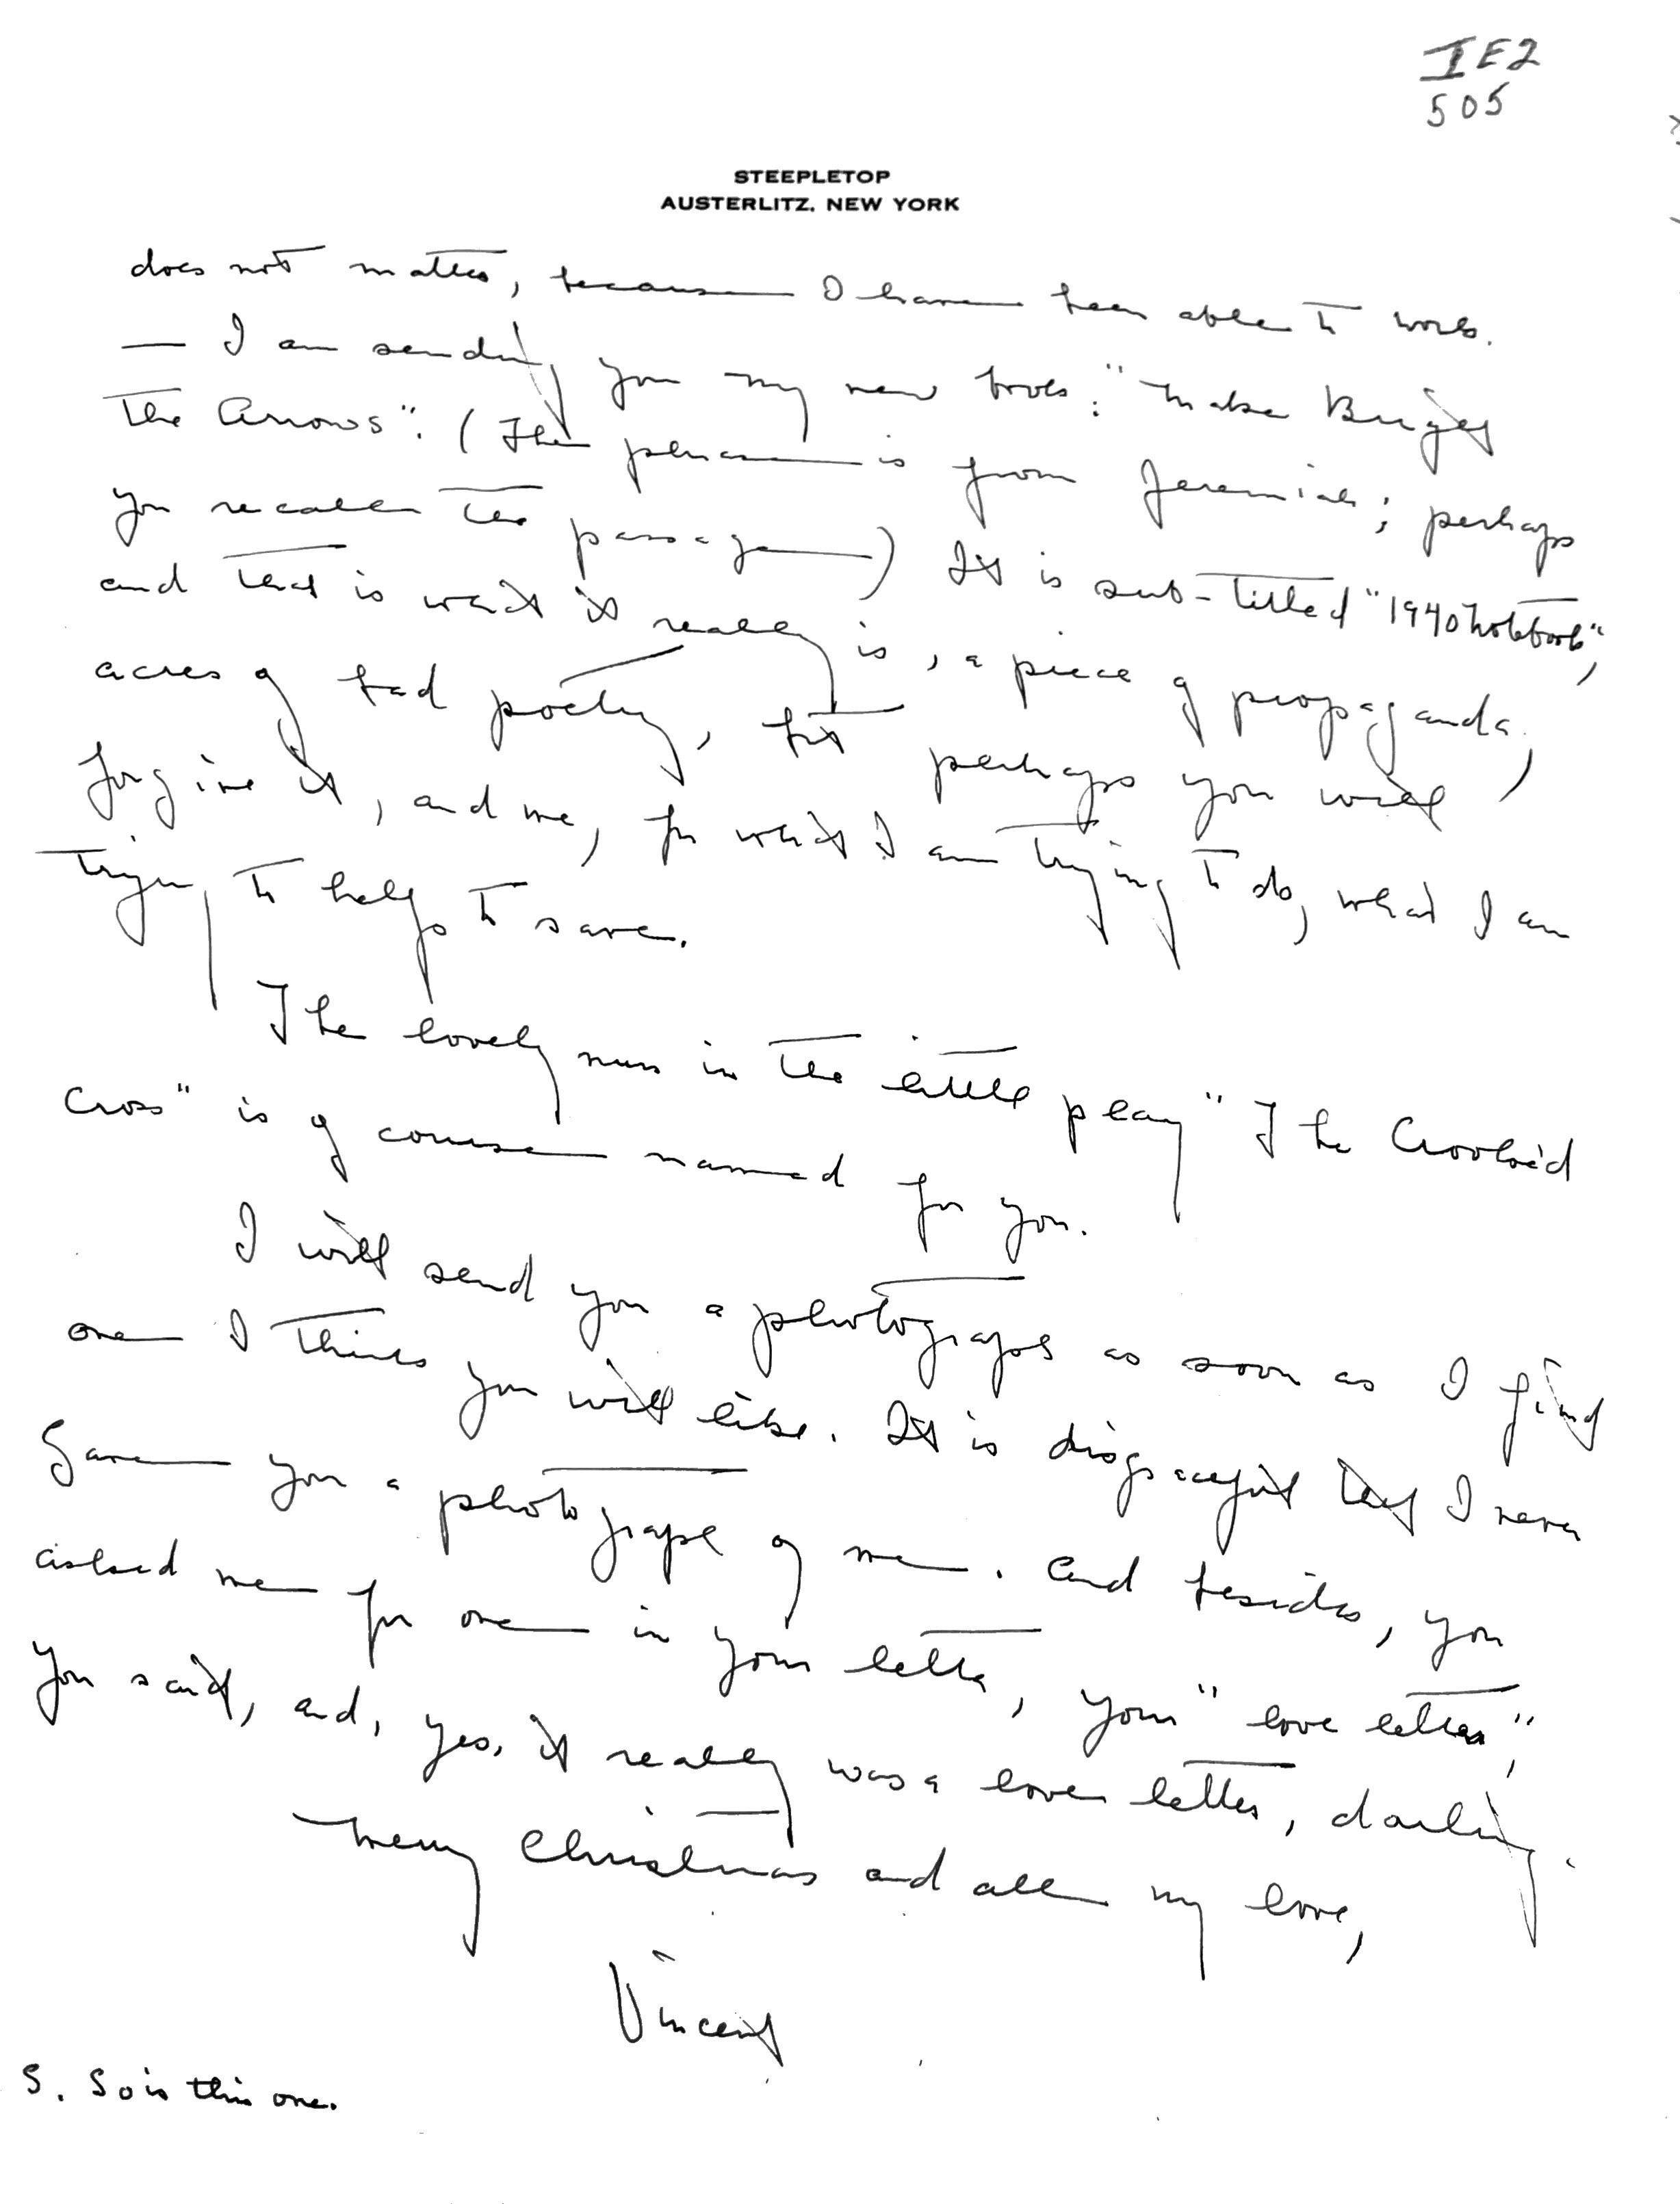 IE2
505
STEEPLETOP
AUSTERLITZ, NEW YORK
does not matter, because I have been able to work.
— I am sending you my new book: "Make Bright
the Arrows". (The phrase is from Jeremiah; perhaps
you recall the passage) It is sub-titled "1940 Notebook",
and that is what it really is, a piece of propaganda,
acres of bad poetry, but perhaps you will
forgive it, and me, for what I am trying to do, what I am
trying to help to save.
The lovely nun in the little play "The Crooked
Cross" is of course named for you.
I will send you a photograph as soon as I find
one I think you will like. It is disgraceful that I never
gave you a photograph of me. And besides, you
asked me for one in your letter, your "love letter",
you said, and, yes, it really was a love letter, darling.
Merry Christmas and all my love,
Vincent
S. So is this one.